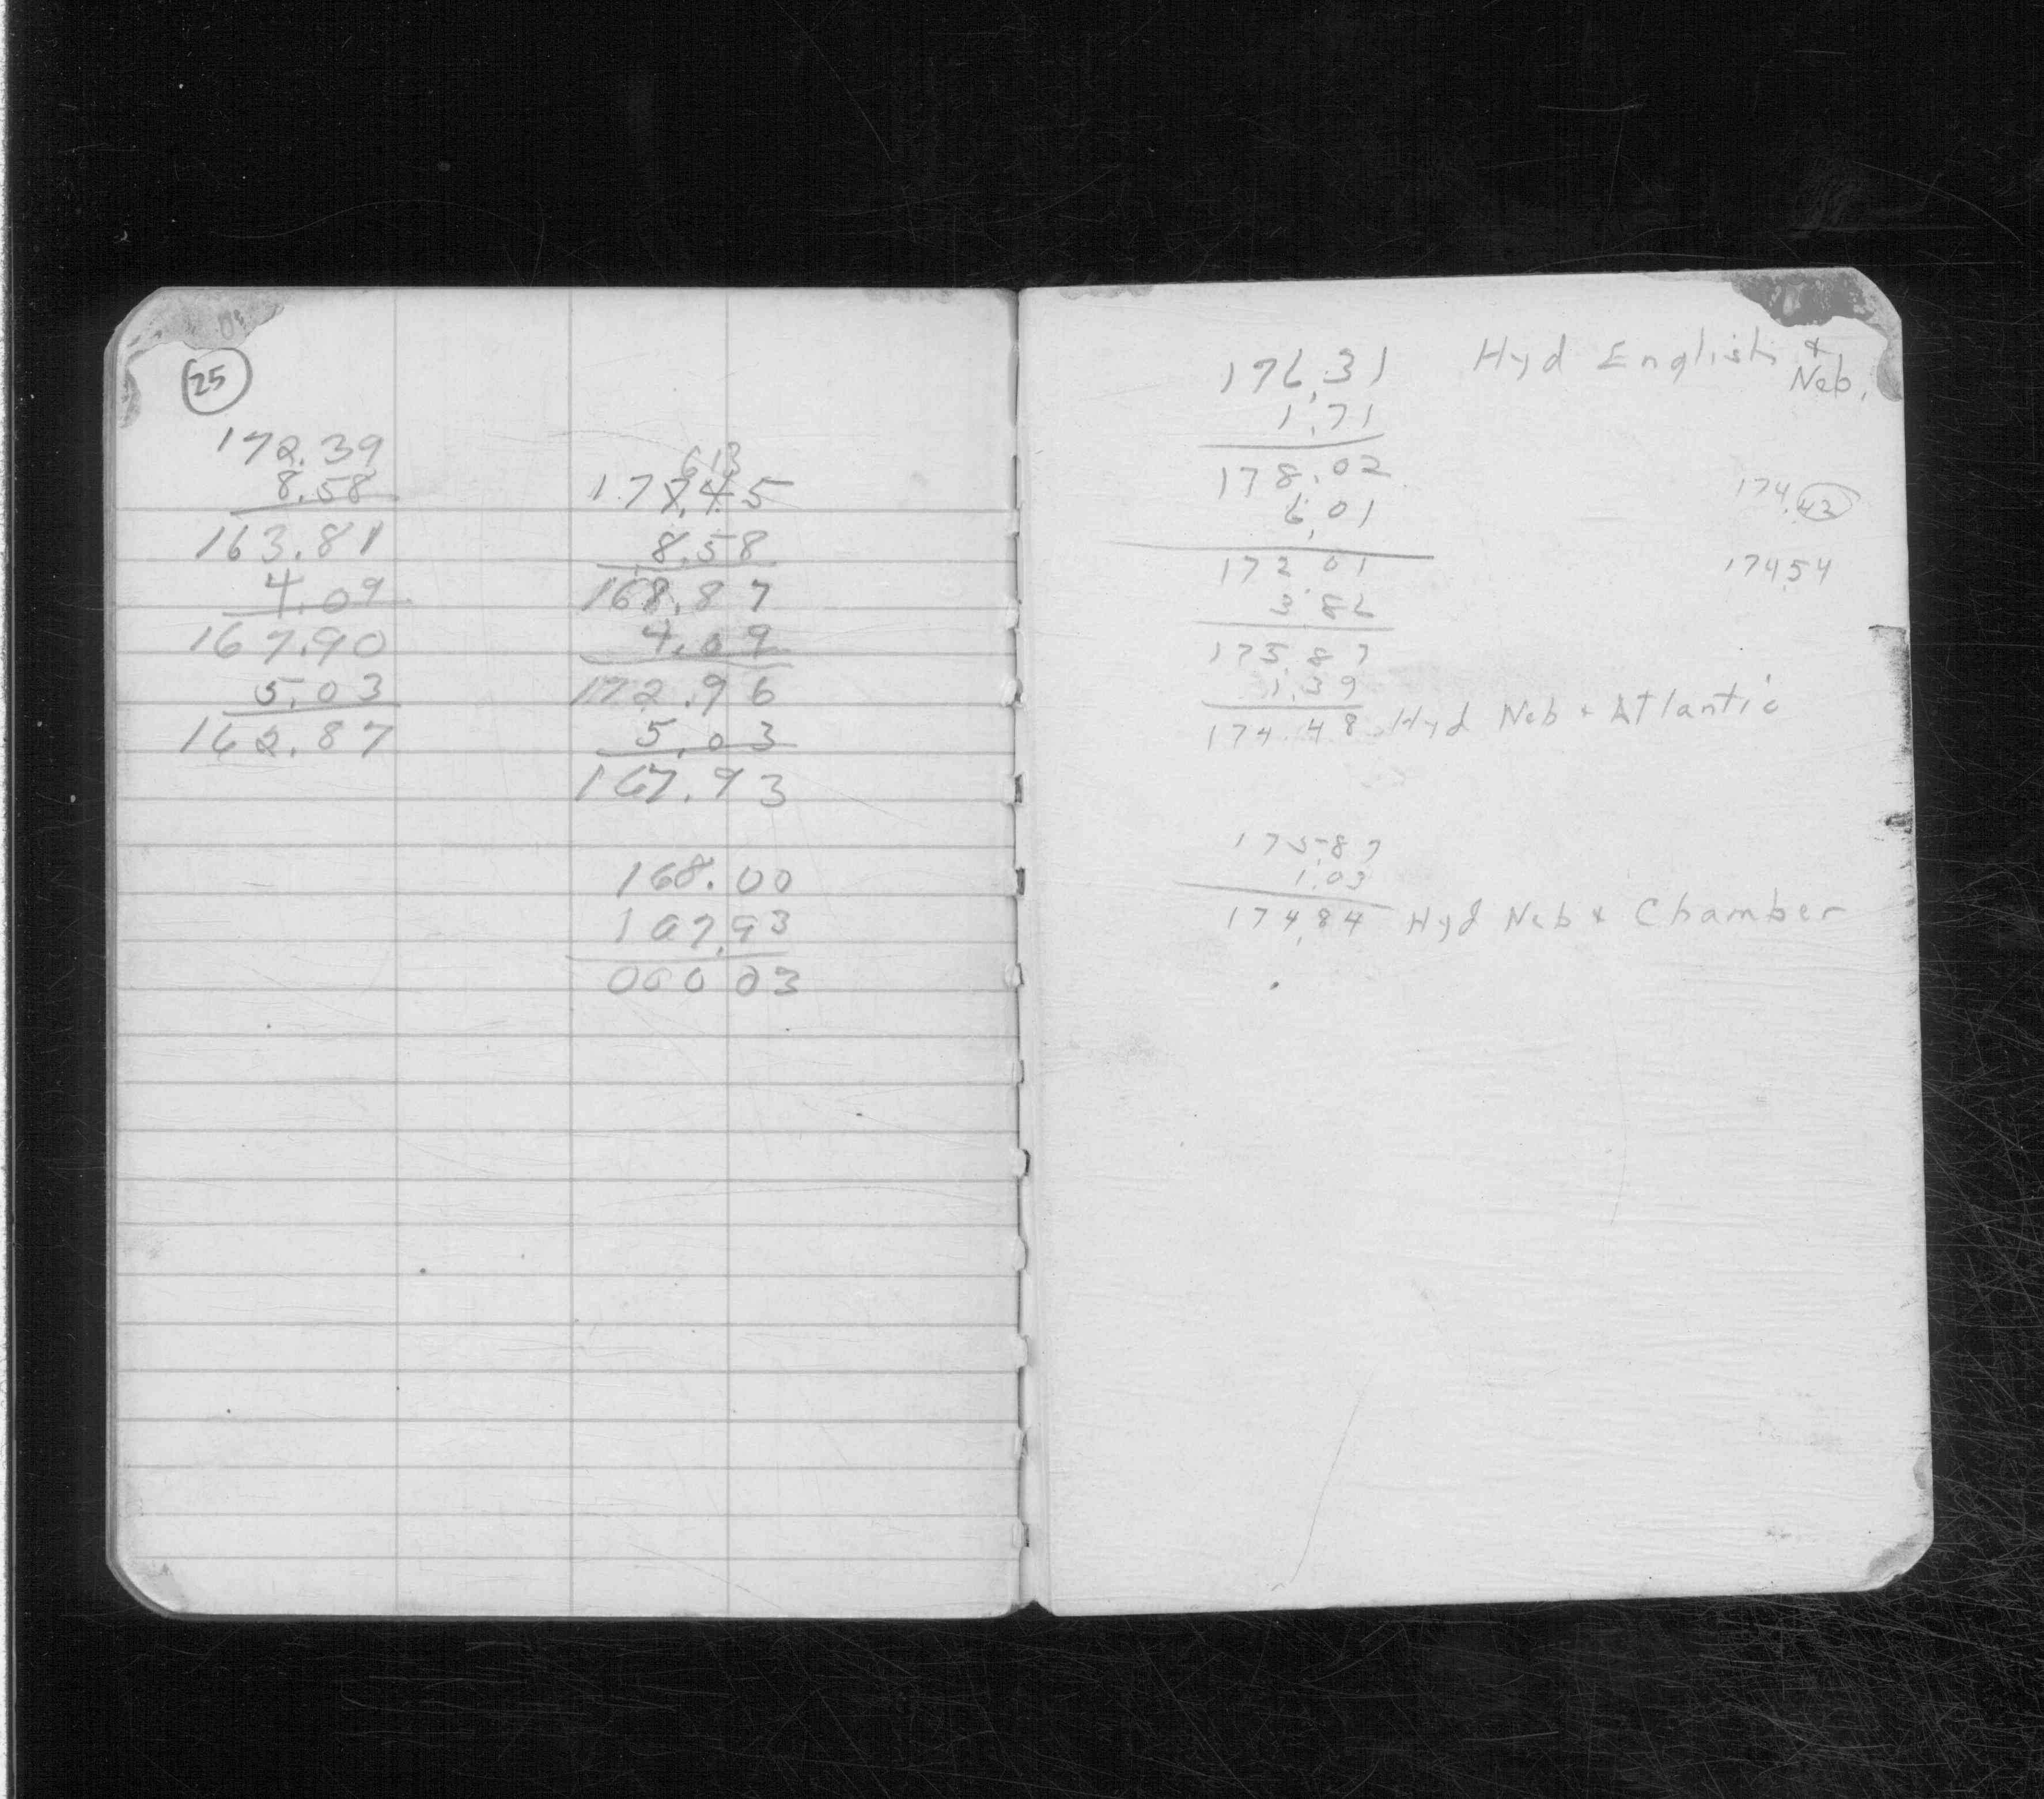 25
172.39
8.58
163.81
4.09
167.90
5.03
162.87
613
177.45
8.58
168.87
4.09
172.96
5.03
167.93
168.00
167.93
000 03
176.31 Hyd English &
Neb.
1.71
178.02
6.01
172 01
3.86
175.87
1.39
174.48 Hyd Neb & Atlantic
174.43
174.54
175.87
1.03
174.84 Hyd Neb & Chamber